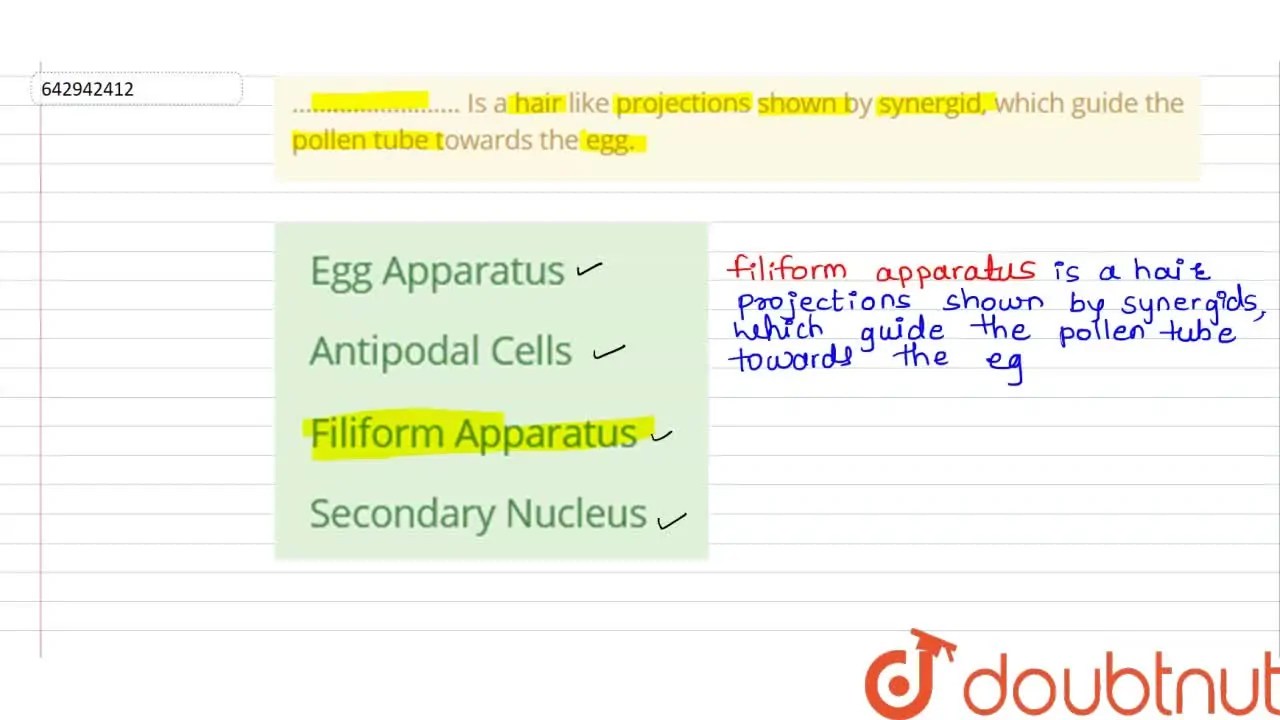 642942412
........................... Is a hair like projections shown by synergid, which guide the
pollen tube towards the egg.
Egg Apparatus
Antipodal Cells
Filiform Apparatus
Secondary Nucleus
filiform apparatus is a hair
projections shown by synergids,
which guide the pollen tube
towards the eg
doubtnut